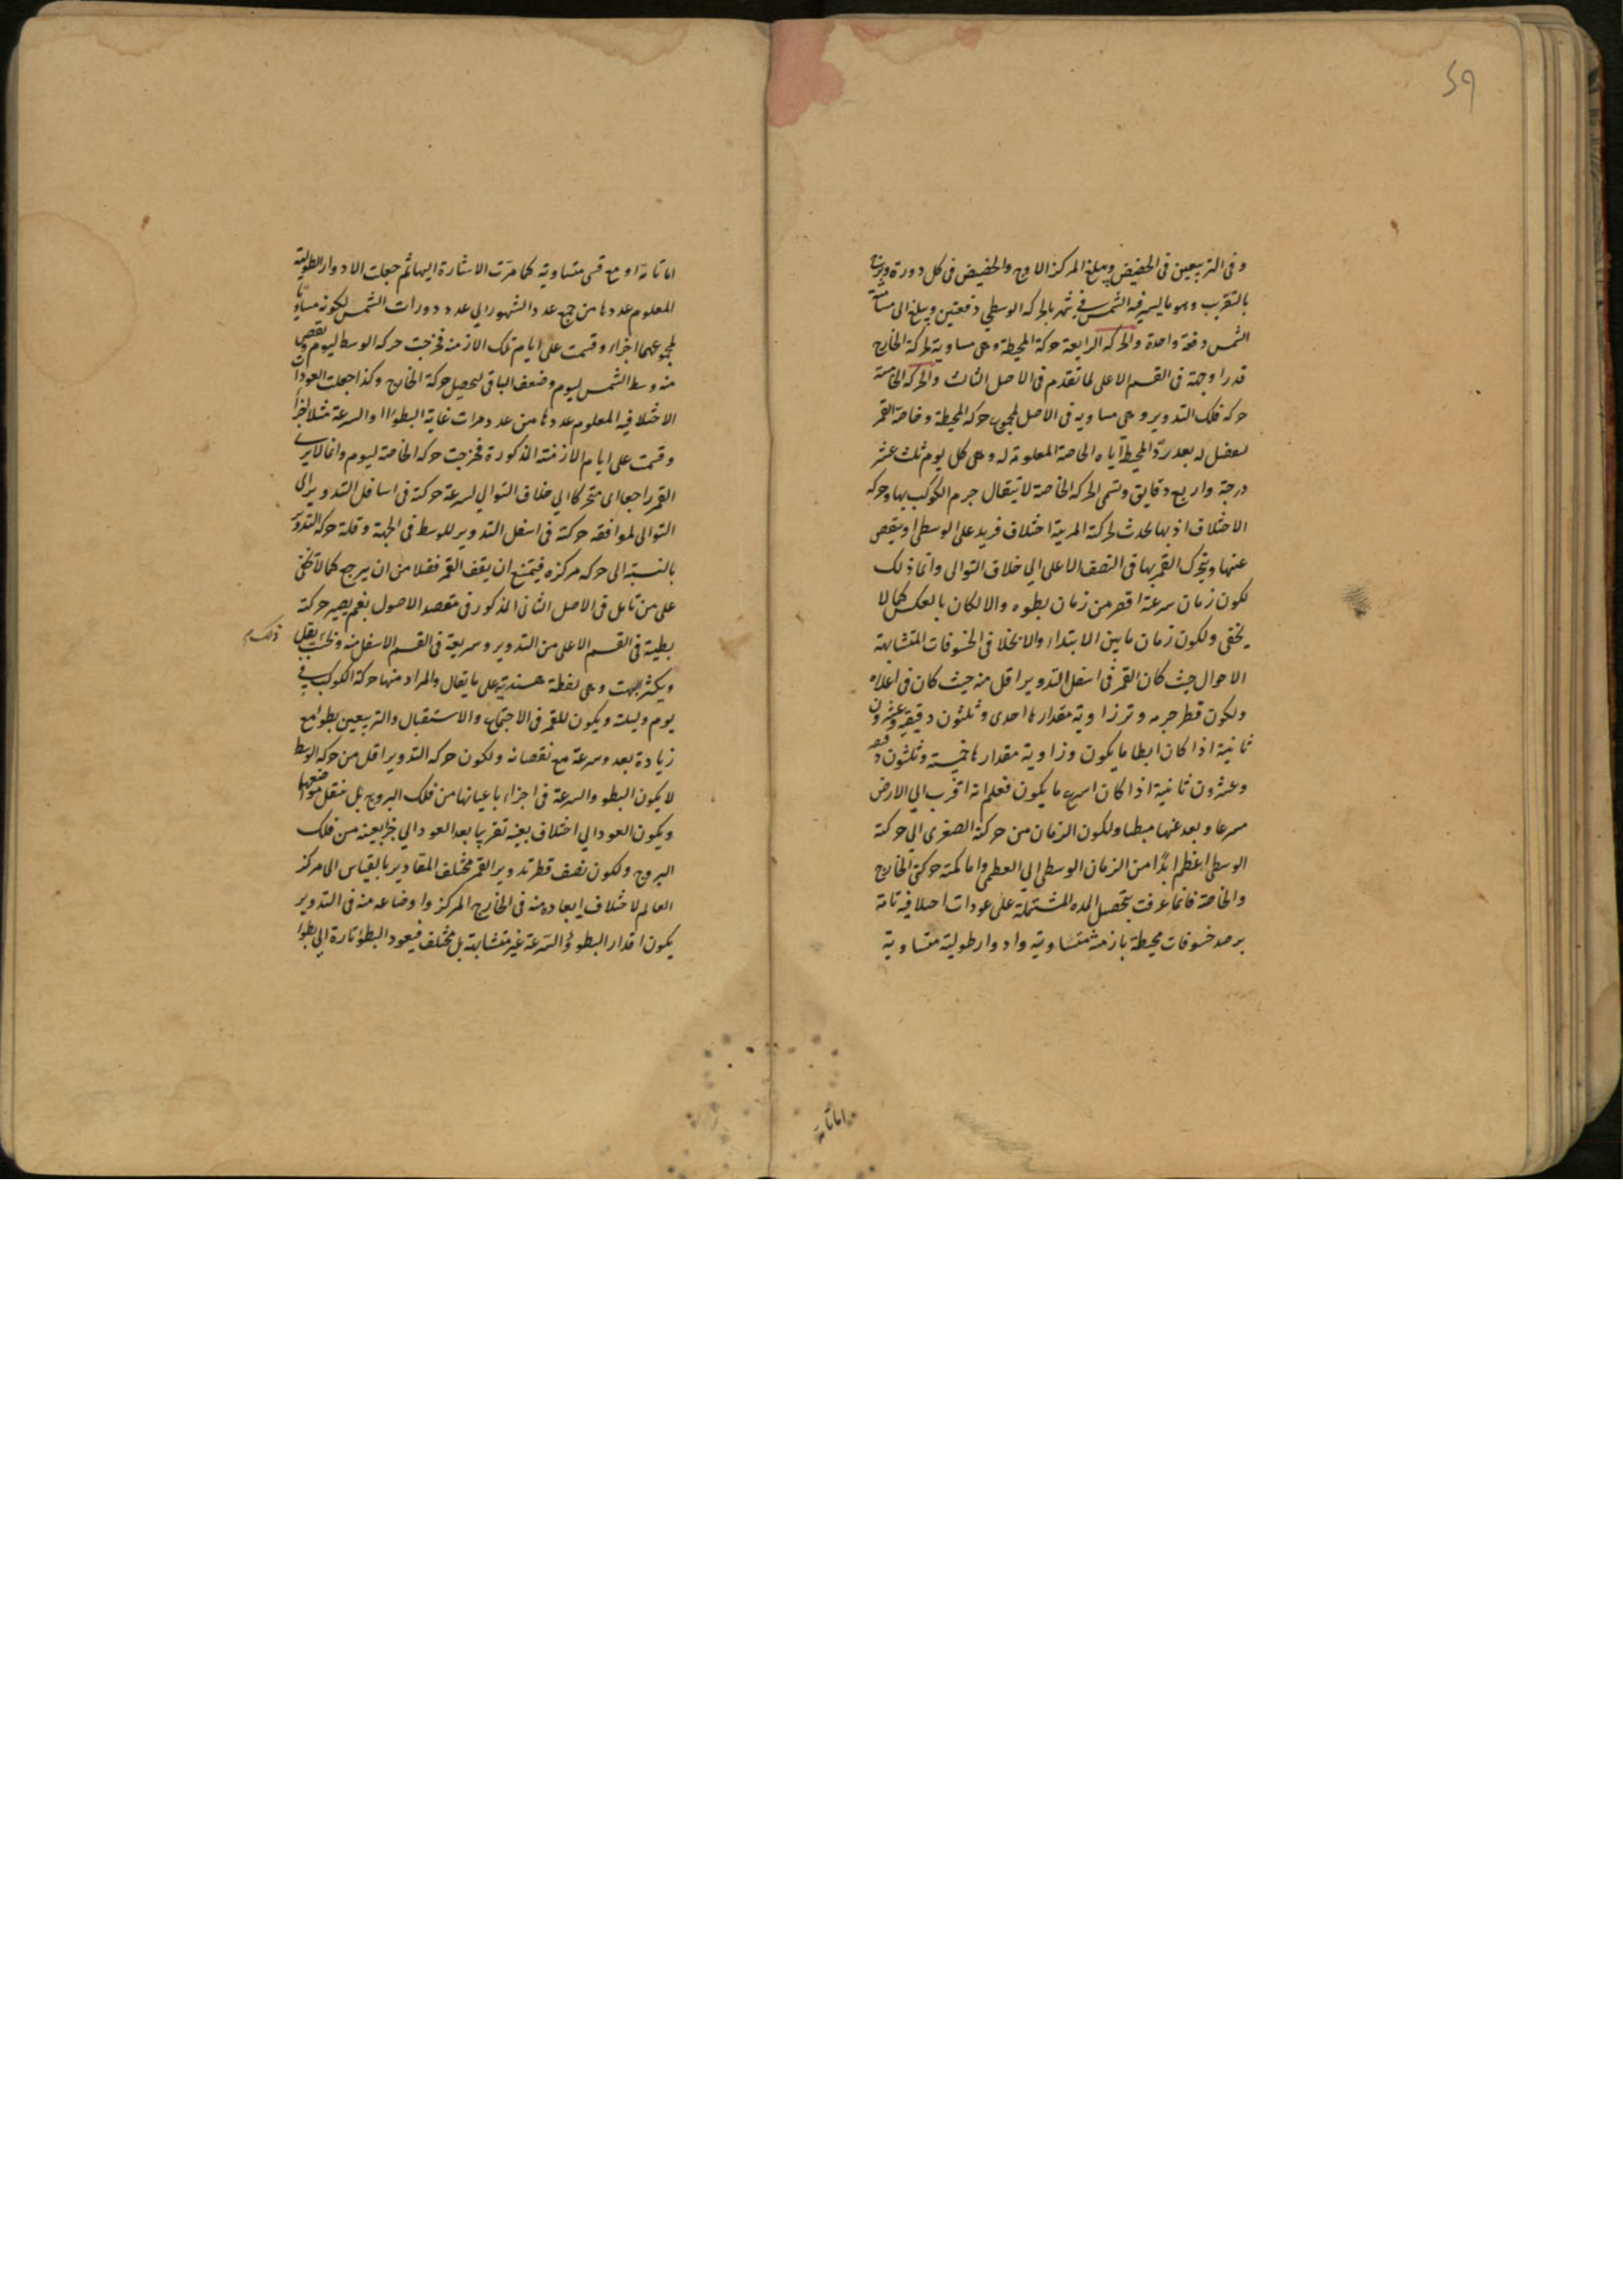 59
وفى التربيعين فى الحضيض ويبلغ المركز الاوج والحضيض فى كل دورة مرتين
بالتقريب وهو ما يسير فيه الشمس فى شهر بالحركه الوسطى دفعتين ويبلغ الى مسامتة
الشمس دفعة واحدة والحركه الرابعة حركة المحيطة وهى مساوية لحركة الخارج
قدرا وجهة فى القسم الاعلى لما تقدم فى الاصل الثالث والحركه الخامسة
حركه فلك التدوير وهى مساويه فى الاصل لمجموع حركه المحيطة وخاصة القمر
لفضل له بعد ردّ المحيط اياه الخاصة المعلومة له وهى كل يوم ثلث عشر
درجة واربع دقايق وتسمى الحركه الخاصة لانتقال جرم الكوكب بها وحركه
الاختلاف اذ بها يحدث لحركة المريية اختلاف فيزيد على الوسطى او ينقص
عنها ويتحرك القمر بها فى النصف الاعلى الى خلاف التوالى وانما ذلك
لكون زمان سرعة اقصر من زمان بطوه والا لكان بالعكس كما لا
يخفى ولكون زمان ما بين الابتداء والانجلا فى الخسوفات المتشابهة
الاحوال حيث كان القمر فى اسفل التدوير اقل منه حيث كان فى اعلاه
ولكون قطر جرمه وتر زاوية مقدارها احدى وثلثون دقيقة وعشرون
ثانية اذا كان ابطا ما يكون وزاوية مقدارها خمسة وثلثون دقيقة
وعشرون ثانية اذا كان اسرع ما يكون فعلم انه اقرب الى الارض
مسرعا وبعد عنها مبطيا ولكون الزمان من حركة الصغرى الى حركة
الوسطى اعظم ابدًا من الزمان الوسطى الى العظمى واما كمية حركتى الخارج
والخاصة فانما عرفت بتحصيل المده المشتملة على عودات اختلافيه تامة
برصد خسوفات محيطة بازمنة متساوية وادوار طولية متساوية
اما تامة
اما تامة او مع قسى متساوية كما مرّت الاشارة اليها ثم جعلت الادوار الطولية
المعلوم عددها من جمع عدد الشهور الى عدد دورات الشمس لكونه مساويًا
لمجموعهما اجزاء وقسمت على ايام تلك الازمنه فخرجت حركه الوسط ليوم ونقص
منه وسط الشمس ليوم وضعف الباقى ليحصل حركة الخارج وكذا جعلت العودات
الاختلافيه المعلوم عددها من عدد مرات غاية البطو او السرعة مثلا اجزاءً
وقسمت على ايام الازمنة المذكورة فخرجت حركه الخاصة ليوم وانما لا يرى
القمر راجعا اى متحركا الى خلاف التوالى لسرعة حركة فى اسافل التدوير الى
التوالى لموافقه حركة فى اسفل التدوير للوسط فى الجهة وقلة حركه التدوير
بالنسبة الى حركه مركزه فيمتنع ان يقف القمر فضلا من ان يرجع كما لا يخفى
على من تامل فى الاصل الثانى المذكور فى مقصد الاصول نعم يصير حركة
بطيئة فى القسم الاعلى من التدوير وسريعة فى القسم الاسفل منه وبحسب يقل
ذلك
ويكثر البهت وهى لفظة هندية على ما يقال والمراد منها حركة الكوكب فى
يوم وليلته ويكون للقمر فى الاجتماع والاستقبال والتربيعين بطو مع
زيادة بعد وسرعة مع نقصانه ولكون حركه التدوير اقل من حركه الوسط
لا يكون البطو والسرعة فى اجزاء باعيانها من فلك البروج بل ينتقل موضعها
ويكون العود الى اختلاف بعينه تقريبا بعد العود الى جزء بعينه من فلك
البروج ولكون نصف قطر تدوير القمر مختلف المقادير بالقياس الى مركز
العالم لاختلاف ابعاده منه فى الخارج المركز واوضاعه منه فى التدوير
يكون اقدار البطو والسّرعة غير متشابهة بل مختلف فيعود البطو تارة الى بطوا